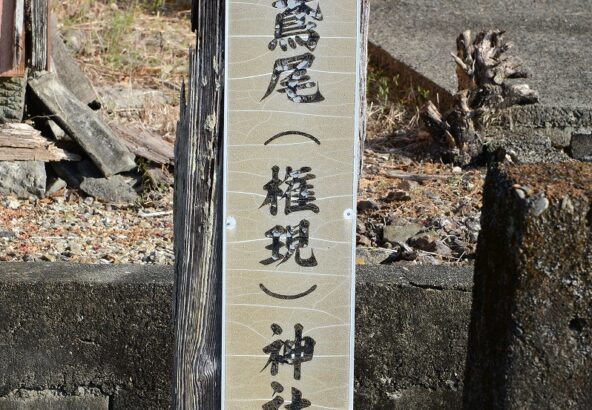 鷲尾（権現）神社